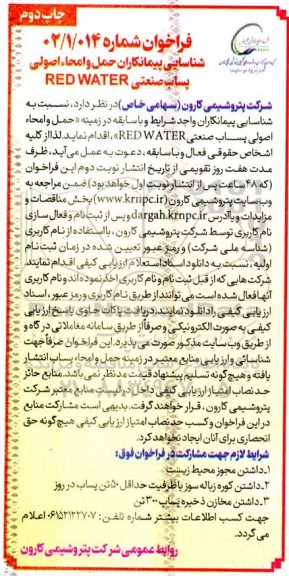 چاپ دوم
فراخوان شماره ۰۲/۱/۰۱۴
شناسایی پیمانکاران حمل و امحاء اصولی
پساب صنعتی RED WATER
شرکت پتروشیمی کارون (سهامی خاص) در نظر دارد، نسبت به
شناسایی پیمانکاران واجد شرایط و با سابقه در زمینه «حمل و امحاء
اصولی پساب صنعتی RED WATER»، اقدام نماید. لذا از کلیه
اشخاص حقوقی فعال و با سابقه، دعوت به عمل می‌آید، ظرف
مدت هفت روز تقویمی از تاریخ انتشار نوبت دوم این فراخوان
(که ۴۸ ساعت پس از انتشار نوبت اول خواهد بود) ضمن مراجعه به
وب سایت پتروشیمی کارون (www.krnpc.ir) بخش مناقصات و
مزایدات و یا آدرس dargah.krnpc.ir و پس از ثبت نام و فعال سازی
نام کاربری توسط شرکت پتروشیمی کارون، با استفاده از نام کاربری
(شناسه ملی شرکت) و رمز عبور تعیین شده در زمان ثبت نام
اولیه، نسبت به دانلود اسناد استعلام ارزیابی کیفی اقدام نمایند.
شرکت‌هایی که از قبل ثبت نام و نام کاربری اخذ نموده اند و نام کاربری
آنها فعال شده است می توانند از طریق نام کاربری و رمز عبور، اسناد
ارزیابی کیفی را دانلود نمایند. دریافت پاکات حاوی پاسخ ارزیابی
کیفی به صورت الکترونیکی و صرفاً از طریق سامانه معاملاتی درگاه و
از طریق وب سایت مذکور صورت می پذیرد. این فراخوان صرفاً جهت
شناسایی و ارزیابی منابع معتبر در زمینه حمل و امحاء پساب انتشار
یافته و هیچ گونه تسلیم پیشنهاد قیمت مدنظر نمی باشد. منابع حائز
حد نصاب امتیاز ارزیابی کیفی داخل در لیست منابع معتبر شرکت
پتروشیمی کارون، قرار خواهند گرفت. بدیهی است مشارکت منابع
در این فراخوان و کسب حد نصاب امتیاز ارزیابی کیفی هیچ گونه حق
انحصاری برای آنان ایجاد نخواهد کرد.
شرایط لازم جهت مشارکت در فراخوان فوق:
۱. داشتن مجوز محیط زیست
۲. داشتن کوره زباله سوز با ظرفیت حداقل ۵۰ تن پساب در روز
۳. داشتن مخازن ذخیره پساب ۳۰۰ تن
جهت کسب اطلاعات بیشتر شماره تلفن: ۰۶۱۵۲۱۲۲۷۰۷ اعلام
می گردد.
روابط عمومی شرکت پتروشیمی کارون